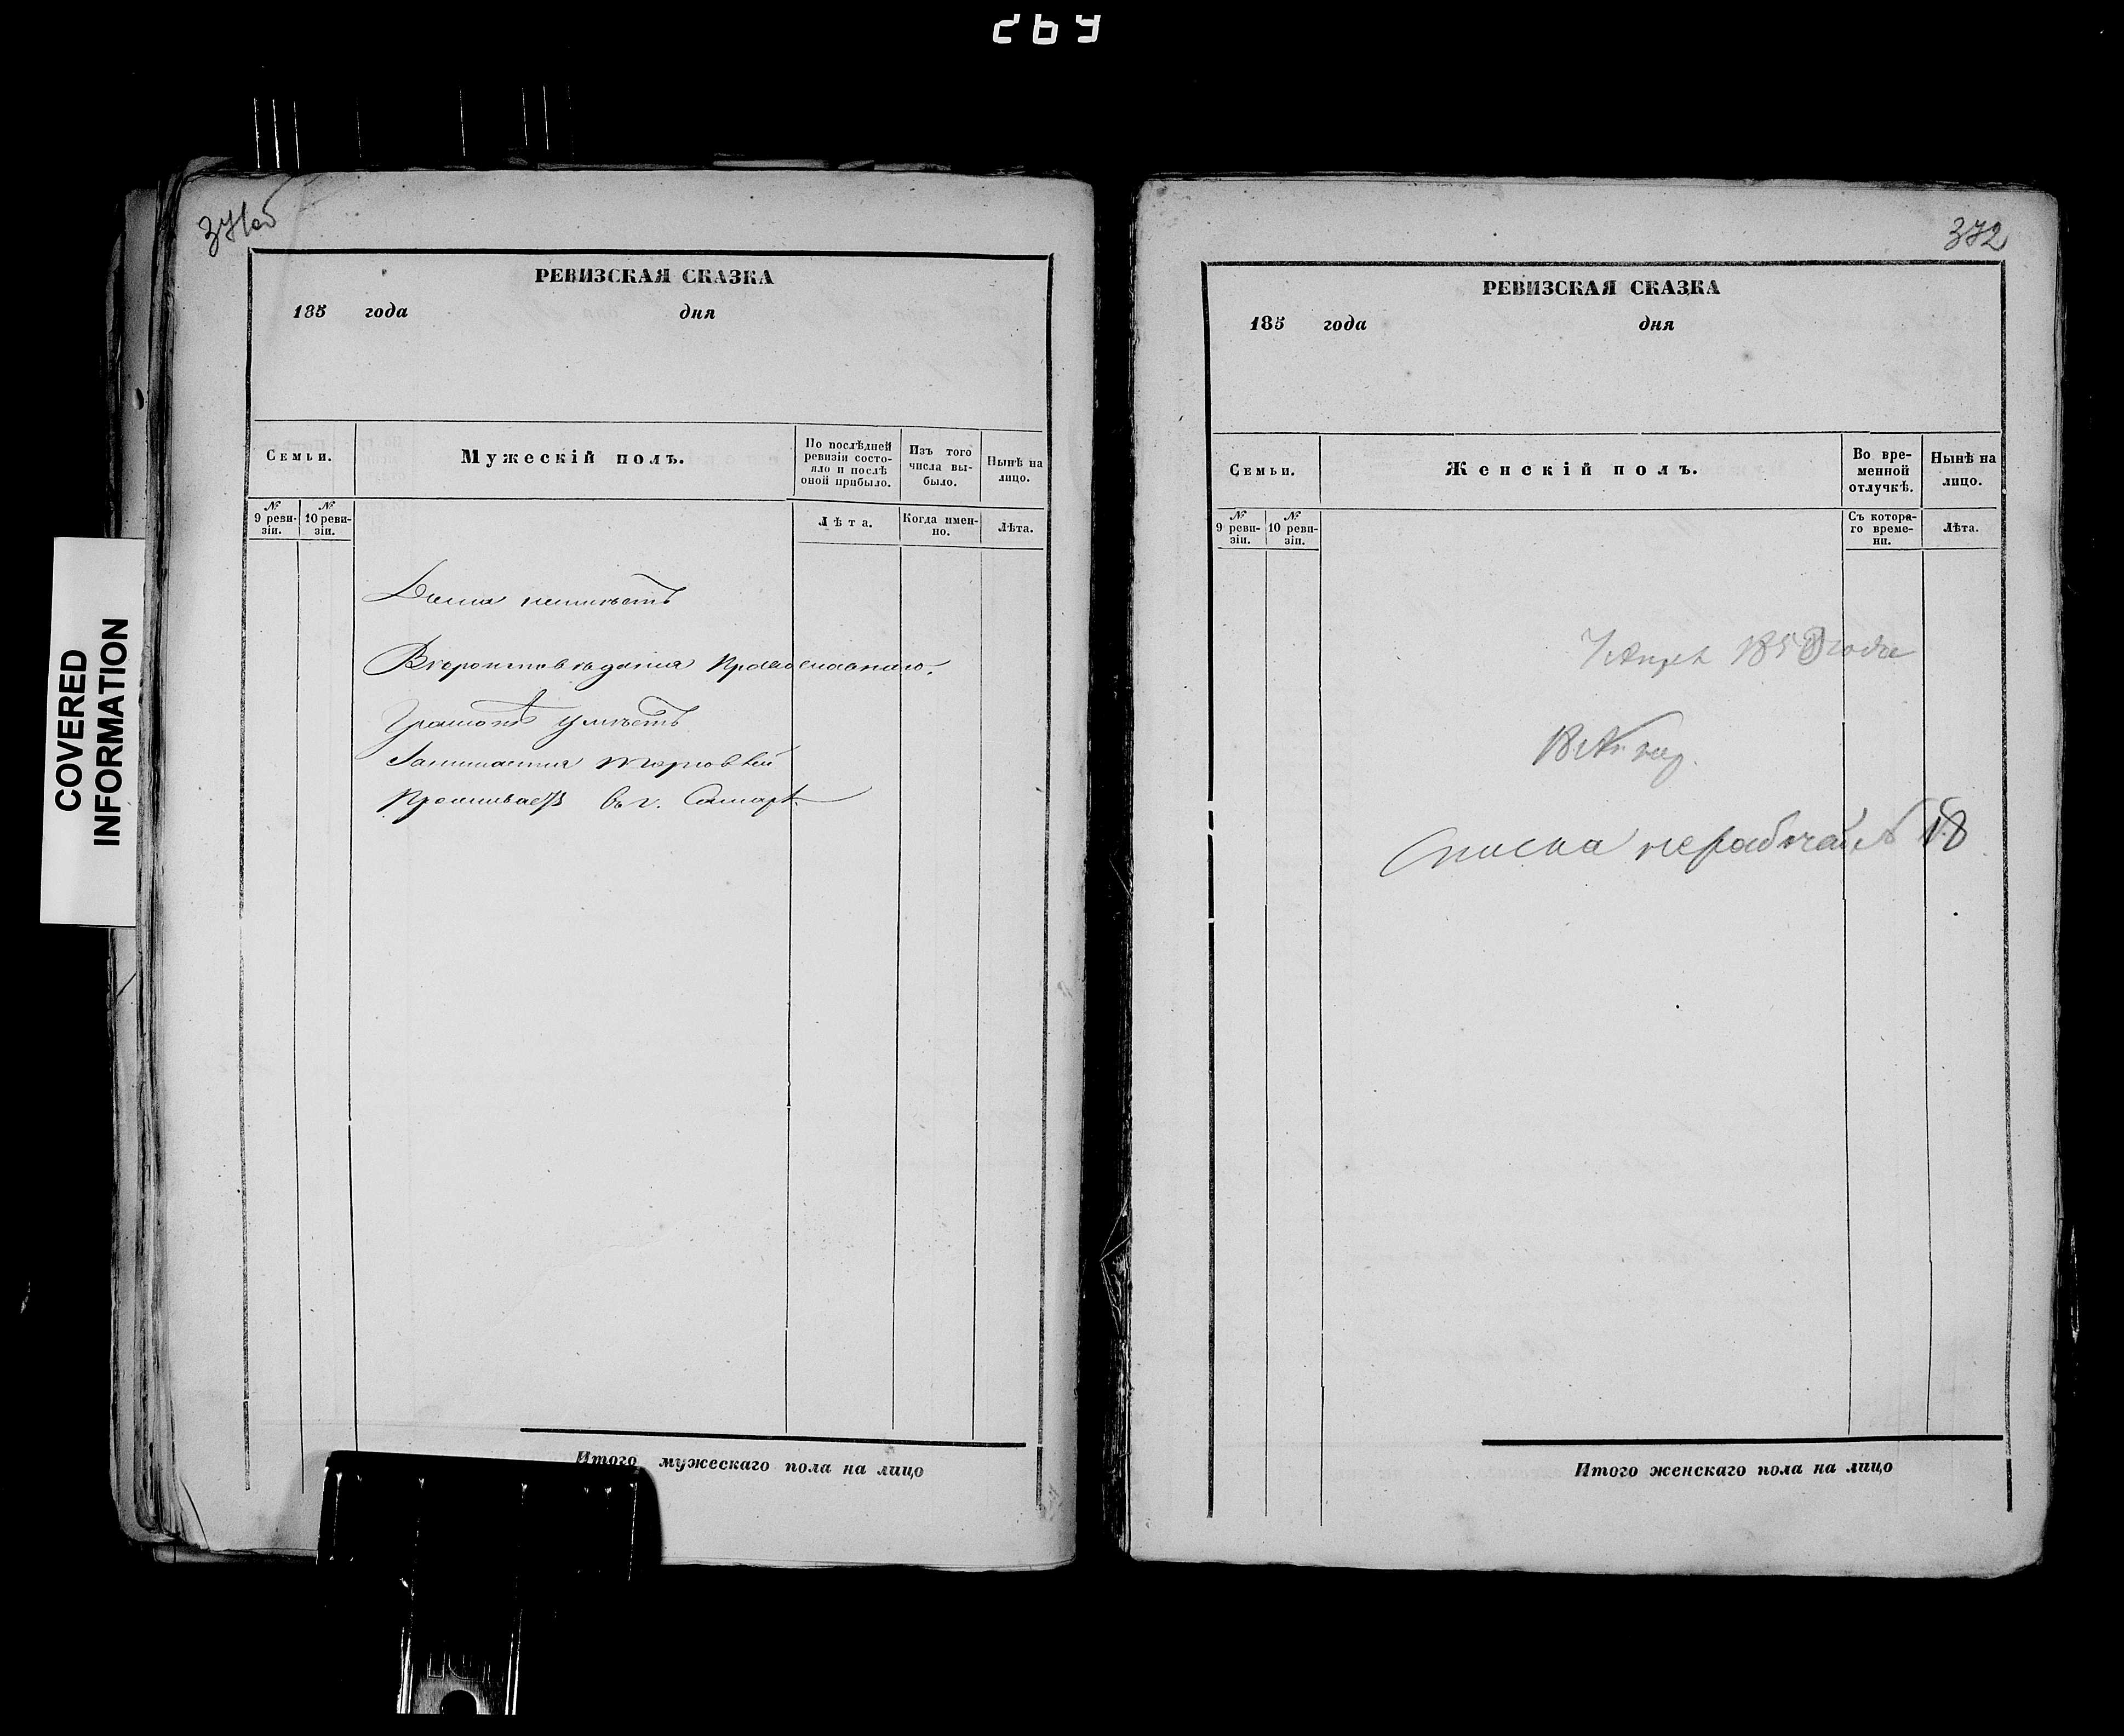 269
COVERED
INFORMATION
371об
РЕВИЗСКАЯ СКАЗКА
185 года дня
Семьи.
Мужескій полъ.
По послѣдней ревизіи состояло и послѣ оной прибыло.
Изъ того числа выбыло.
Нынѣ на лицо.
№ 9 ревизіи.
№ 10 ревизіи.
Лѣта.
Когда именно.
Лѣта.
Дома неимѣетъ
Вѣроисповѣданія Православнаго.
Грамотѣ умѣетъ
Занимается торговлей
Проживаетъ въ г. Самарѣ
Итого мужескаго пола на лицо
372
РЕВИЗСКАЯ СКАЗКА
185 года дня
Семьи.
Женскій полъ.
Во временной отлучкѣ.
Нынѣ на лицо.
№ 9 ревизіи.
№ 10 ревизіи.
Съ котораго времени.
Лѣта.
7 Апрѣ 1858 года
18
Итого женскаго пола на лицо